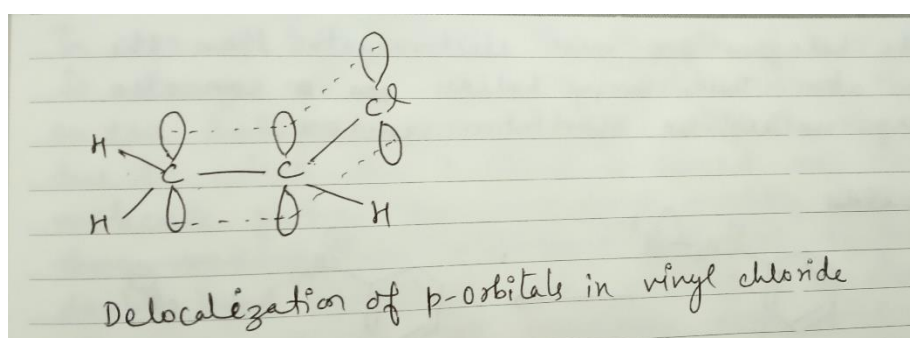 Cl
H
C C
H H
Delocalization of p-orbitals in vinyl chloride